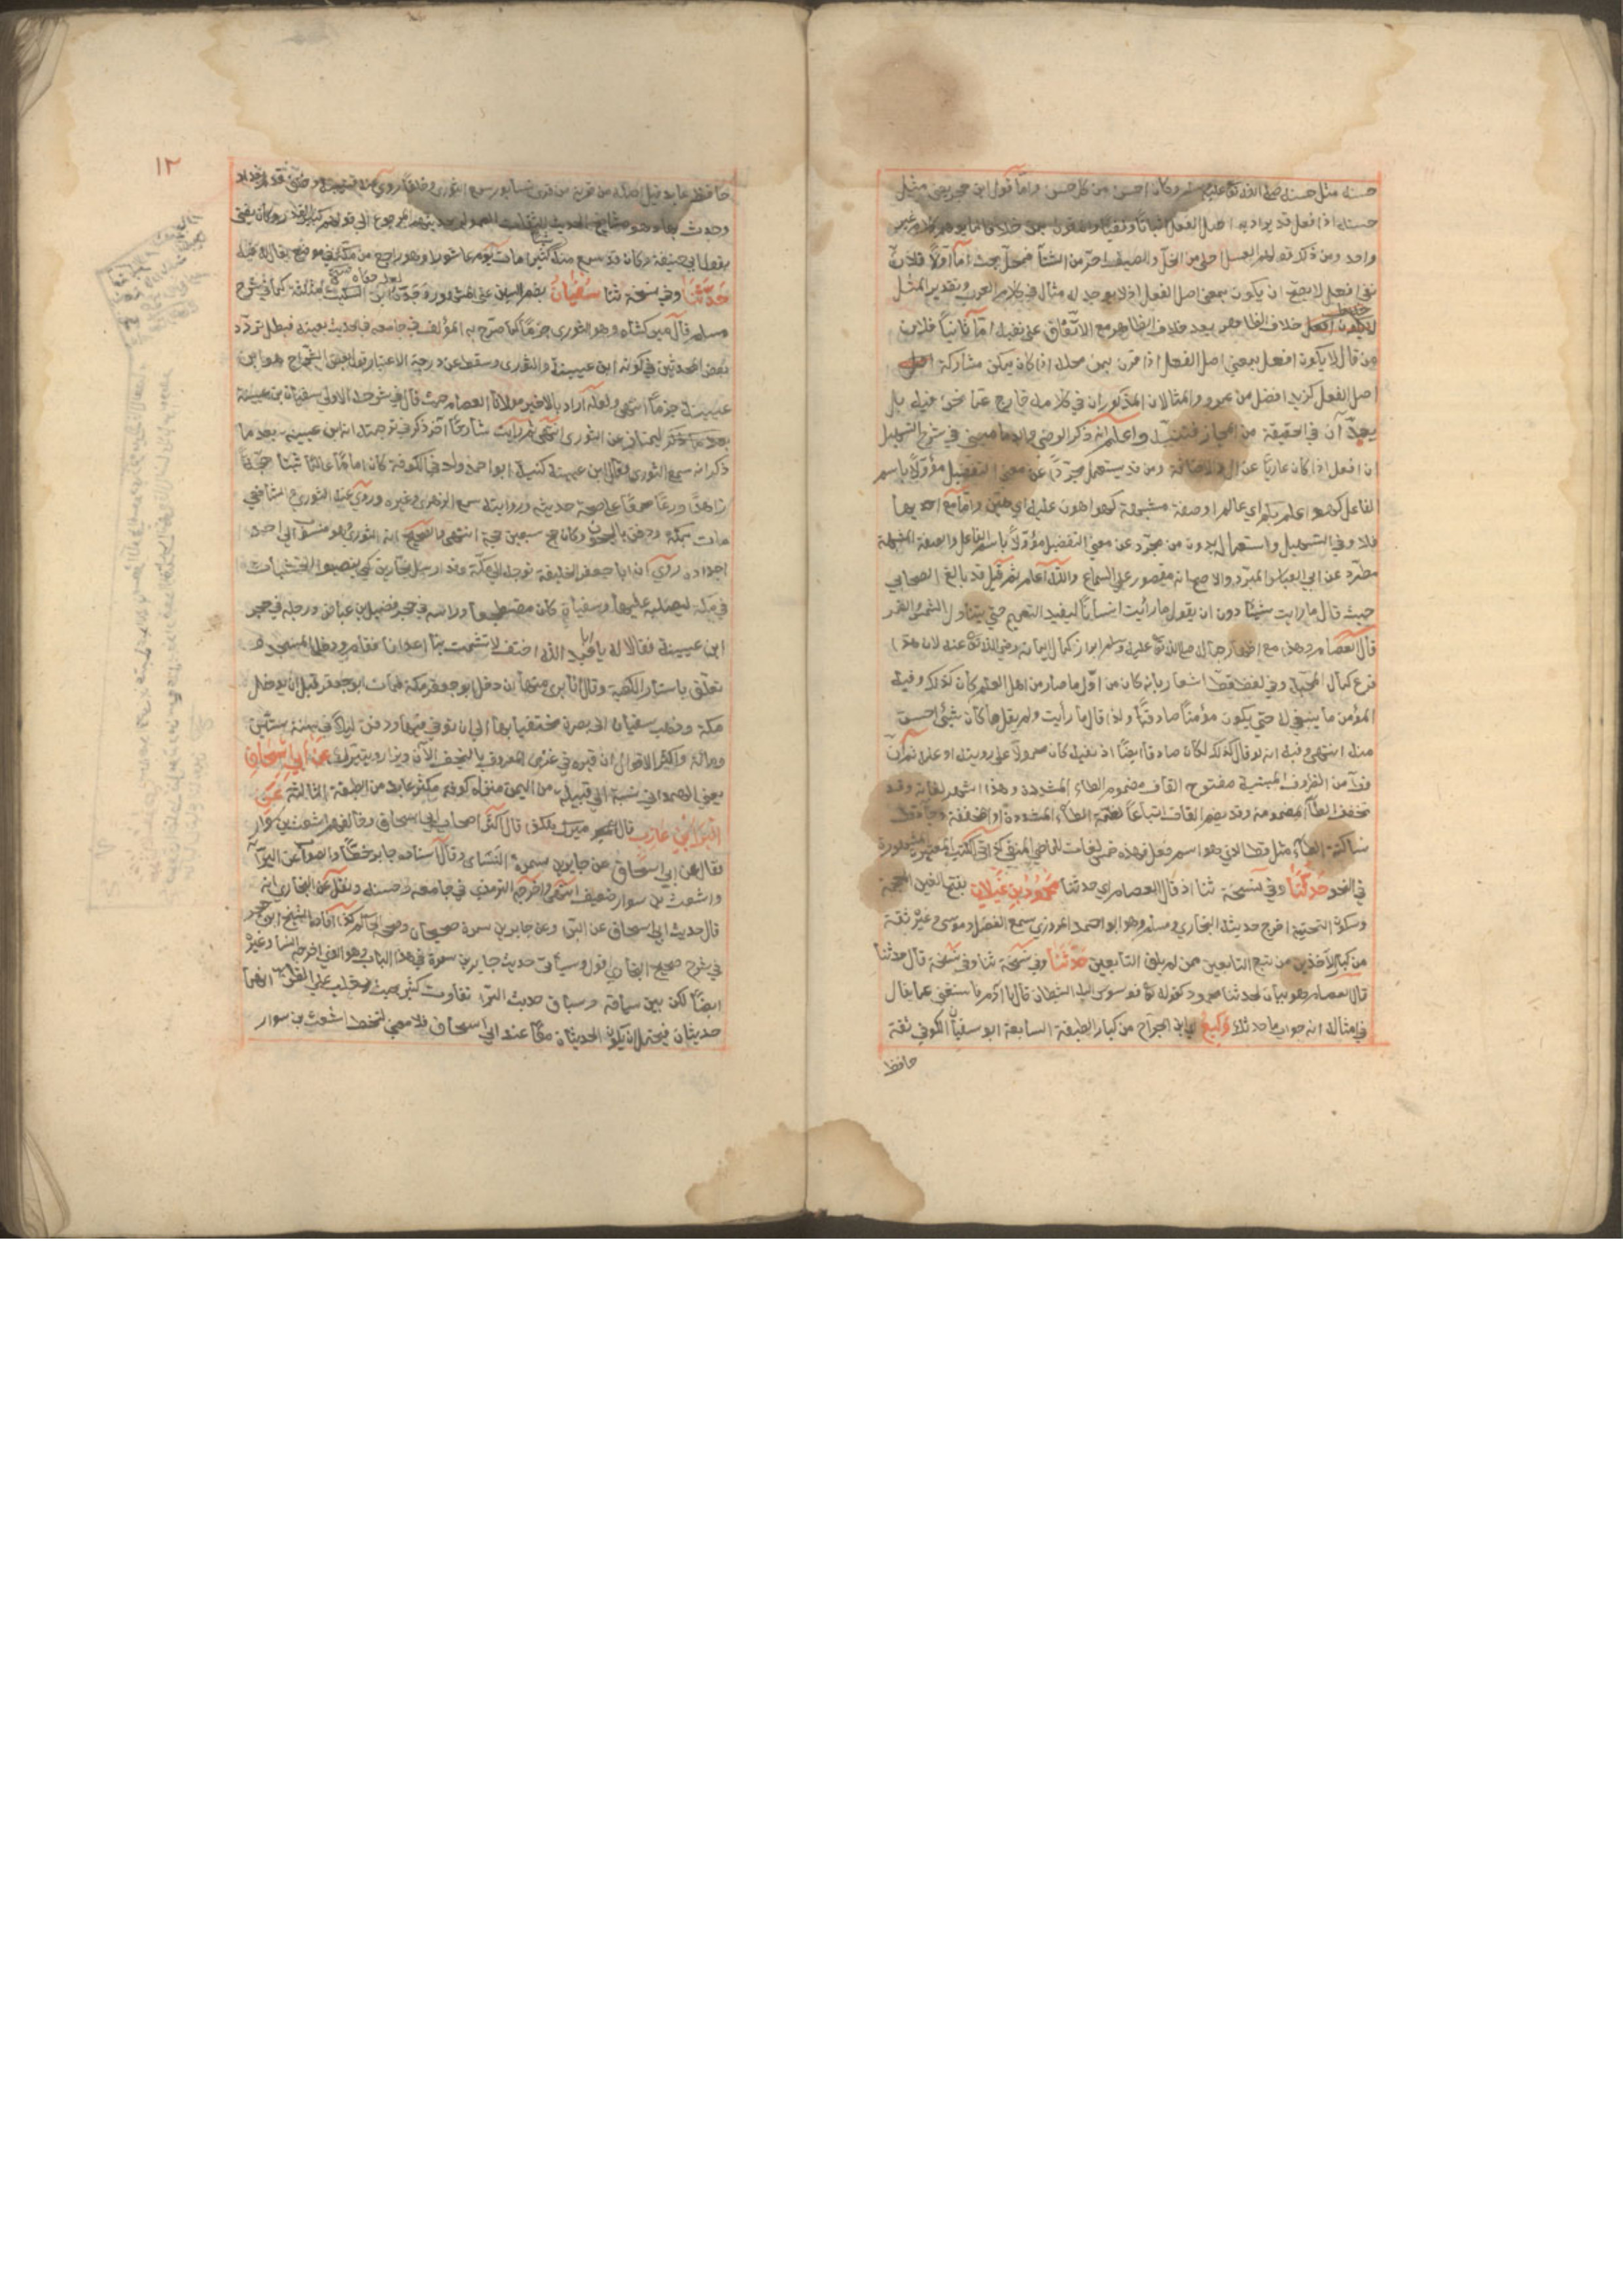 حسنه مثل حسنه صلى الله تعالى عليه وسلم وكان احسن من كل حسن واما قول ابن حجر يعني مثل
حسنه اذ افعل قد يراد به اصل الفعل اثباتا ونفيا وان قرن بمن خلافا لما يوهمه كلام غير
واحد ومن ذلك قولهم العسل احلى من الخل والصيف احر من الشتا فمحل بحث اما اولا فلان
نفي افعل لا يصح ان يكون بمعنى اصل الفعل اذ لا يوجد له مثال في كلام العرب وتقدير المثل
خلاف الظاهر بعد خلاف الظاهر مع الاتفاق على نفيه اما ثانيا فلان
من قال لا يكون افعل بمعنى اصل الفعل اذا قرن بمن محله اذا كان يمكن مشاركة
اصل الفعل كزيد افضل من عمرو والمثالان المذكوران في كلامه خارج عما نحن فيه بل
يعد ان في الحقيقة من المجاز فتنبه واعلم انه ذكر الرضي والدماميني في شرح التسهيل
ان افعل اذا كان عاريا عن ال والاضافة ومن قد يستعمل مجردا عن معنى التفضيل مؤولا باسم
الفاعل كهو اعلم بكم اي عالم او صفة مشبهة كهو اهون عليه اي هين واما مع احد بها
فلا وفي التسهيل واستعماله بدون من مجرد عن معنى التفضيل مؤولا باسم الفاعل والصفة المشبهة
مطرد عن ابي العباس المبرد والاصح انه مقصور على السماع والله اعلم ثم قيل قد بالغ الصحابي
حيث قال ما رايت شيئا دون ان يقول ما رايت انسانا ليفيد التعميم حتى يتناول الشمس والقمر
قال العصام وهذا مع اظهار جماله صلى الله تعالى عليه وسلم ابراز كمال ايمانه رضي الله تعالى عنه لان هذا
فرع كمال المحبة وفي لفظ قط اشعار بانه كان من اول ما صار من اهل العلم كان كذلك وفيه
المؤمن ما ينبغي له حتى يكون مؤمنا صادقا ولذا قال ما رأيت ولم يقل ما كان شيئ احسن
منه انتهى وفيه انه لو قال كذلك لكان صادقا ايضا اذ نفيه كان محمولا على رؤيته او علمه ثم ان
قط من الظروف المبنية مفتوح القاف مضموم الطاء المشددة وهذا اشهر لغاته وقد
تخفف الطاء المضمومة وقد يضم القاف اتباعا لضمة الطاء المشددة او المخففة وجاء قط
ساكنة الطاء مثل قط الذي هو اسم فعل فهذه خمس لغات للماضي المنفي كذا في الكتب المعتبرة المشهورة
في النحو حدثنا وفي نسخة ثنا اذ قال العصام اي حدثنا محمود بن غيلان بفتح الغين المعجمة
وسكون التحتية اخرج حديثه البخاري ومسلم وهو ابو احمد المروزي سمع الفضل بن موسى وغيره ثقة
من كبار الآخذين من تبع التابعين ممن لم يلق التابعين حدثنا وفي نسخة ثنا وفي نسخة قال حدثنا
قال العصام هو بيان لحدثنا محمود كقوله تعالى فوسوس اليه الشيطان قال يا آدم فاستغني عما يقال
في امثاله انه جواب ما حدثك وكيع اي ابن الجراح من كبار الطبقة السابعة ابو سفيان الكوفي ثقة
حافظ
١٢
حافظ عابد قيل اصله من قرية من قرى نيسابور سمع الثوري وخلقا روى عنه قتيبة وخلق قدم بغداد
وحدث بها وهو من مشايخ الحديث الثقات المعمول بحديثهم المرجوع الى قولهم كبير القدر وكان يفتي
بقول ابي حنيفة وكان قد سمع منه شيئا كثيرا مات يوم عاشورا وهو راجع من مكة في موضع يقال له فيد
حدثنا وفي نسخة ثنا سفيان بضم السين على المشهور وجوز ابن السكيت تثليثه كما في شرح
مسلم قال ميرك شاه وهو الثوري جزما كما صرح به المؤلف في جامعه في الحديث بعينه فبطل تردد
بعض المحدثين في كونه ابن عيينة والثوري وسقط عن درجة الاعتبار قول بعض الشراح هو ابن
عيينة جزما انتهى ولعله اراد بالاخير مولانا العصام حيث قال في شرحه الاولى سفيان بن عيينة
الثوري انتهى ثم رايت شارحا آخر ذكر في ترجمته انه ابن عيينة بعد ما
ذكر انه سمع الثوري فقال ابن عيينة كنيته ابو احمد ولد في الكوفة كان اماما عالما ثبتا حجة
زاهدا ورعا مجمعا على صحة حديثه وروايته سمع الزهري وغيره وروى عنه الثوري والشافعي
مات بمكة ودفن بالحجون وكان حج سبعين حجة انتهى والصحيح انه الثوري وهو منسوب الى احد
اجداده روي ان ابا جعفر الخليفة توجه الى مكة وقد ارسل نجارين كي ينصبوا الخشبات
في مكة ليصلبه عليها وسفيان كان مضطجعا وراسه في حجر فضيل بن عياض ورجله في حجر
ابن عيينة فقالا له يا ابا عبد الله اختف لا تشمت بنا اعدانا فقام ودخل المسجد و
تعلق باستار الكعبة وقال انا بري منها ان دخل ابو جعفر مكة فمات ابو جعفر قبل ان يدخل
مكة وذهب سفيان الى بصرة مختفيا بها الى ان توفي فيها ودفن ليلا في سنة ستين
ومائة واكثر الاقوال ان قبره في غزي المعروف بالنجف الآن ويزار ويتبرك به عن ابي اسحاق
يعني الهمداني نسبة الى قبيلة من اليمن منزله كوفة مكثر عابد من الطبقة الثالثة عن
البراء بن عازب قال ميرك بلكن قال اكثر اصحاب ابي اسحاق وخالفهم اشعث بن سوار
فقال عن ابي اسحاق عن جابر بن سمرة النسائي وقال اسناده جابر خطأ والصواب عن البراء
واشعث بن سوار ضعيف انتهى واخرجه الترمذي في جامعه وحسنه ونقل عن البخاري انه
قال حديث ابي اسحاق عن البراء وعن جابر بن سمرة صحيحان وصححه الحاكم كذا افاده الشيخ ابن حجر
في شرح صحيح البخاري اقول وسيأتي حديث جابر بن سمرة في هذا الباب وهو الذي اخرجه النسائي وغيره
ايضا لكن بين سياقه وسياق حديث البراء تفاوت كثير بحيث يغلب على الظن انهما
حديثان فيحتمل ان يكون الحديثان معا عند ابي اسحاق فلا معنى لتخطئة اشعث بن سوار